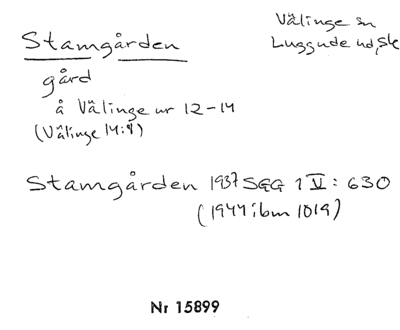 Stamgården
Välinge sn
Luggude hd, Sk
gård
å Välinge nr 12-14
(Välinge 14:4)
Stamgården 1937 SGG 1 V: 630
(1944 ibm 1019)
Nr 15899